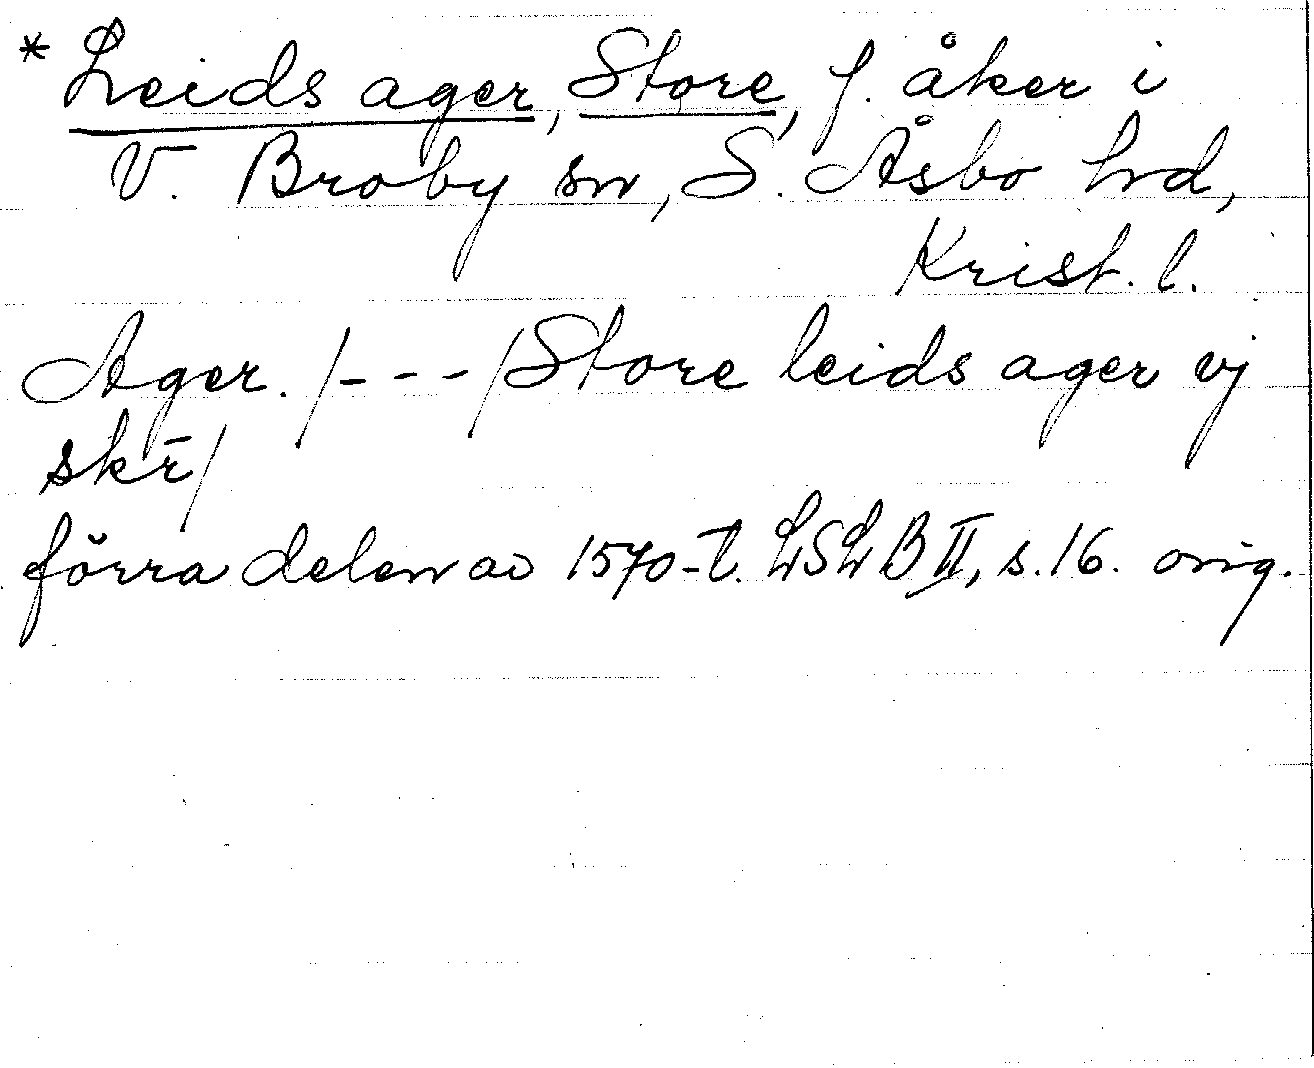 * Leids ager, Store, f. åker i
V. Broby sn, S. Åsbo hrd,
Krist. l.
Ager. /- - -/ Store leids ager vj
skr̄/
förra delen av 1570-t. LSLB II, s. 16. orig.